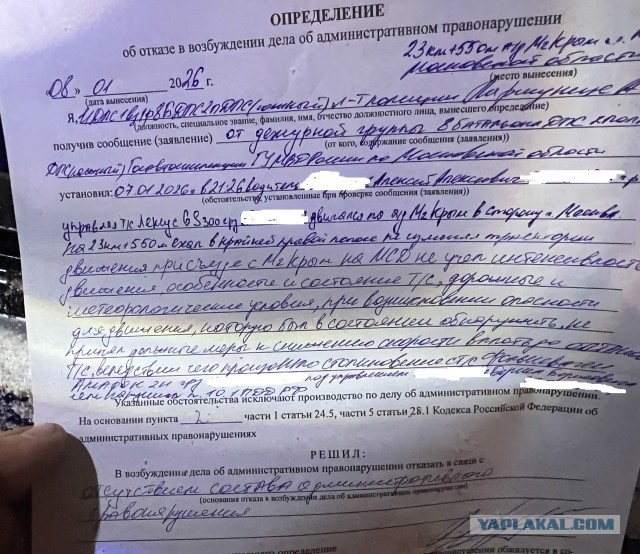 ОПРЕДЕЛЕНИЕ
об отказе в возбуждении дела об административном правонарушении
23км+550м а/д М2 Крым
Московской области
(место вынесения)
«08» 01 2026 г.
(дата вынесения)
Я,
(должность, специальное звание, фамилия, имя, отчество должностного лица, вынесшего определение)
получив сообщение (заявление) от дежурной группы 8 батальона ДПС
(от кого, содержание сообщения (заявления))
ДПС (южный) Госавтоинспекции ГУ МВД России по Московской области
установил: 07.01.2026 в 21:26 водитель Алексей Алексеевич
(обстоятельства, установленные при проверке сообщения (заявления))
управляя т/с Лексус GS300 г/з двигался по а/д М2 Крым в сторону г. Москва
на 23км+550м ехал в крайней правой полосе
движения при съезде с М2 Крым на МСД не учел интенсивность
движения особенности и состояние Т/С, дорожные и
метеорологические условия, при возникновении опасности
для движения, которую был в состоянии обнаружить, не
принял должные меры к снижению скорости вплоть до остановки
Т/С, вследствие чего произошло столкновение с т/с Фольксваген
Амарок под управлением
чем нарушил п. 10.1 ПДД РФ
Указанные обстоятельства исключают производство по делу об административном правонарушении.
На основании пункта 2 части 1 статьи 24.5, части 5 статьи 28.1 Кодекса Российской Федерации об
административных правонарушениях
РЕШИЛ:
В возбуждении дела об административном правонарушении отказать в связи с
отсутствием состава административного
(основания отказа в возбуждении дела об административном правонарушении)
правонарушения
YAPLAKAL.COM